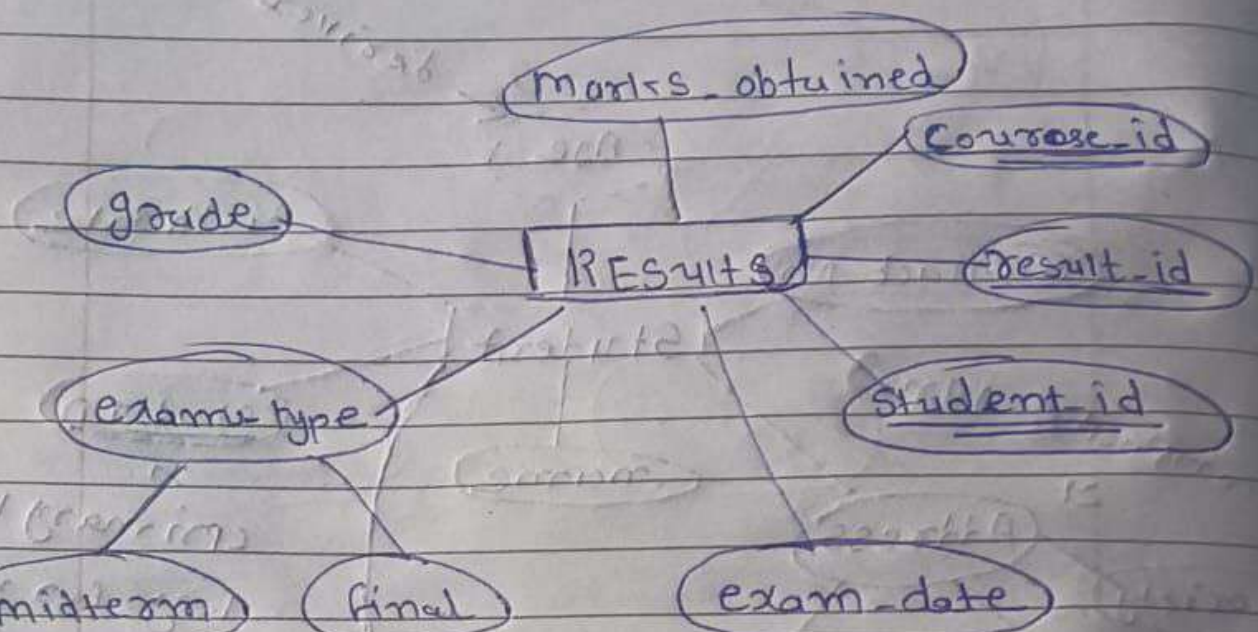 marks_obtained
course_id
grade
RESUltS
result_id
exam_type
student_id
midterm
final
exam_date